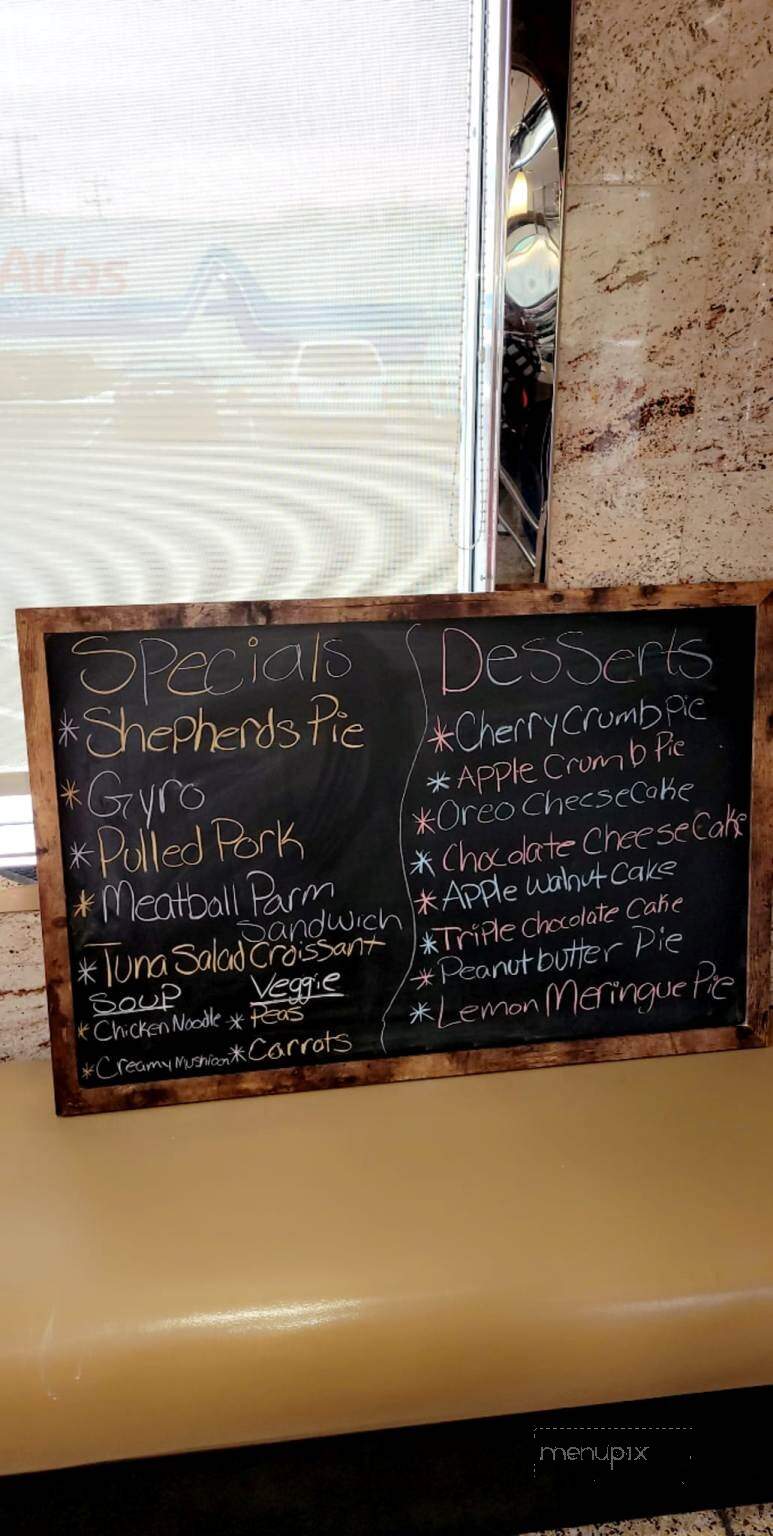 Atlas
Specials
* Shepherds Pie
* Gyro
* Pulled Pork
* Meatball Parm
Sandwich
* Tuna Salad Croissant
Soup
* Chicken Noodle
* Creamy Mushroom
Veggie
* Peas
* Carrots
Desserts
* Cherry Crumb Pie
* Apple Crumb Pie
* Oreo Cheesecake
* Chocolate Cheese Cake
* Apple Walnut Cake
* Triple Chocolate Cake
* Peanut butter Pie
* Lemon Meringue Pie
menupix